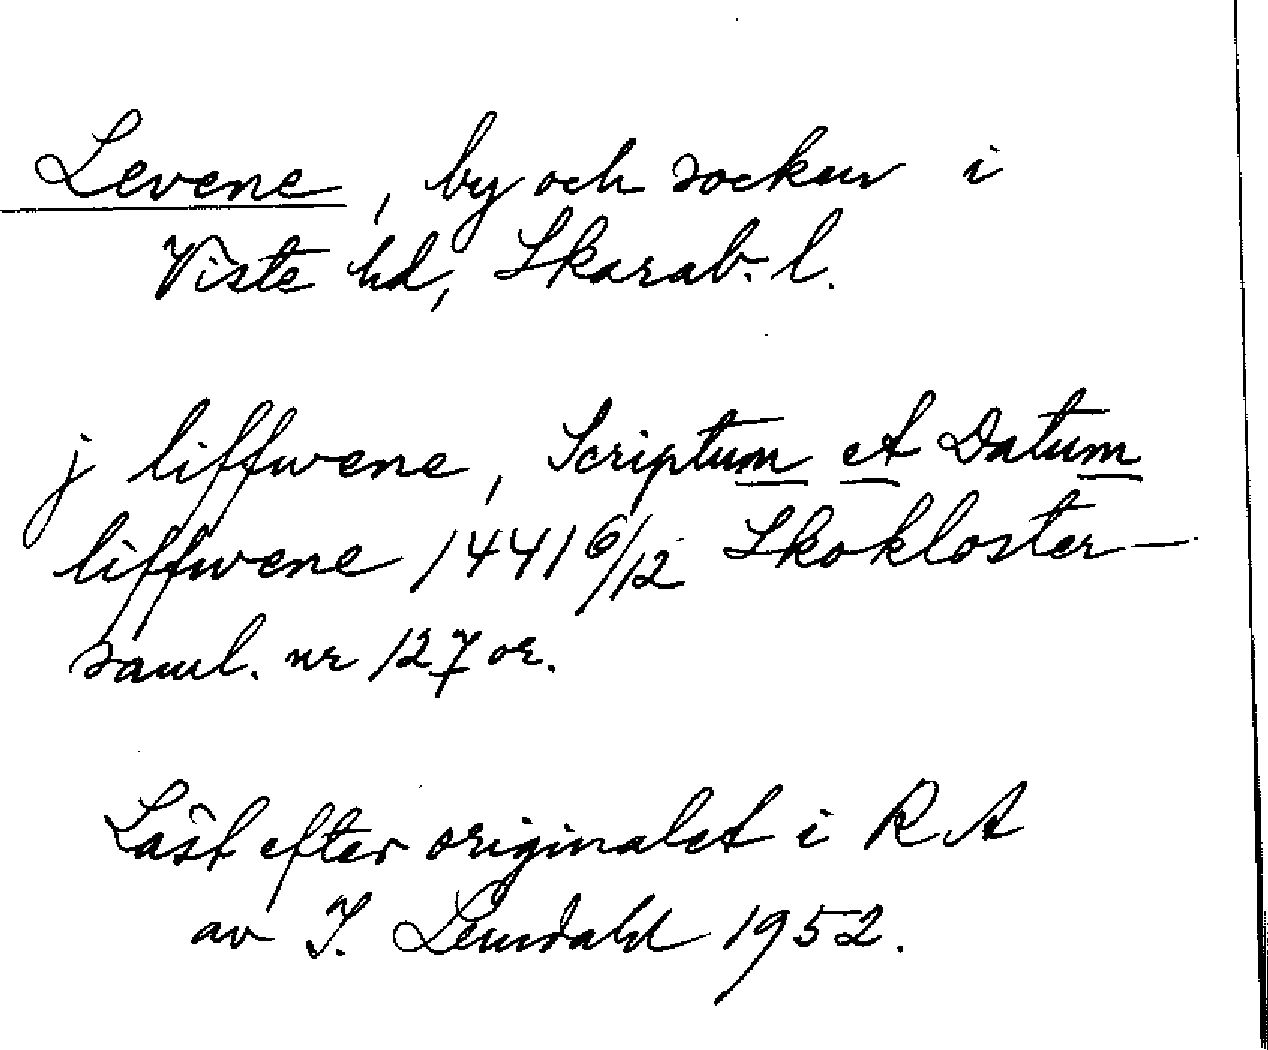 Levene, by och socken i
Viste hd, Skarab. l.
j liffwene, Scriptum et Datum
liffwene 1441 6/12 Skokloster-
saml. nr 127 or.
Läst efter originalet i RA
av I. Lundahl 1952.